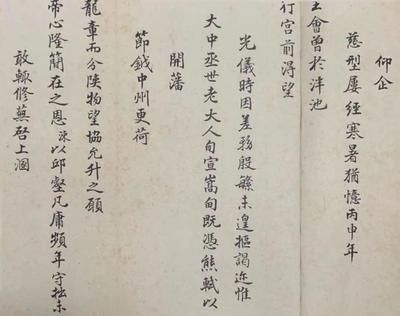 仰企
慈型屢經寒暑猶憶丙申年
王會曾於泮池
行宫前淂望
光儀時因差務殷繁未遑摳謁迩惟
大中丞世老大人旬宣嵩甸既憑熊軾以
開藩
節鉞中州更荷
龍章而分陝物望協允升之願
帝心隆簡在之恩涑以邱壑凡庸頻年守拙未
敢輙修蕪啓上溷